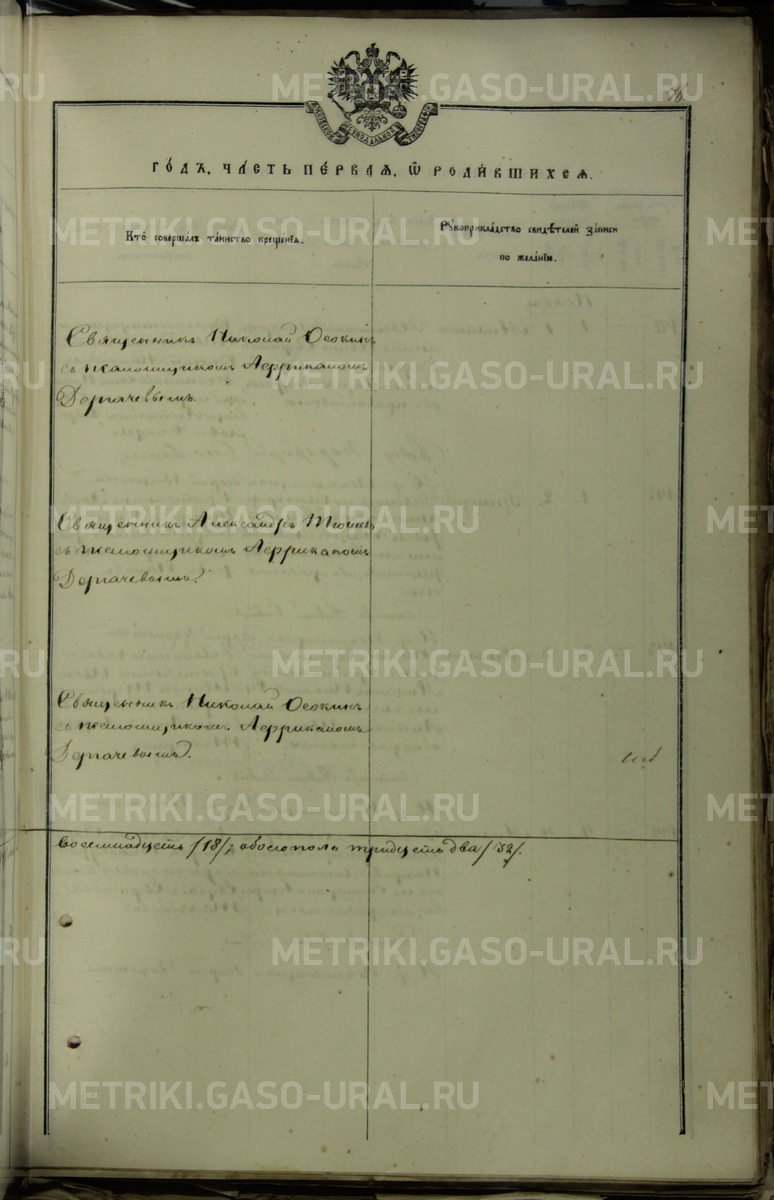 56
ГОДЪ, ЧАСТЬ ПЕРВАЯ, Ѿ РОДИВШИХСЯ.
Кто совершалъ таинство крещенія.
Рукоприкладство свидѣтелей записи
по желанію.
Священникъ Николай Осокинъ
съ псаломщикомъ Аффриканомъ
Дерпачевымъ.
Священникъ Александръ
съ псаломщикомъ Аффриканомъ
Дерпачевымъ.
Священникъ Николай Осокинъ
съ псаломщикомъ Аффриканомъ
Дерпачевымъ.
восемнадцать /18/; обоего пола тридцать два /32/.
METRIKI.GASO-URAL.RU